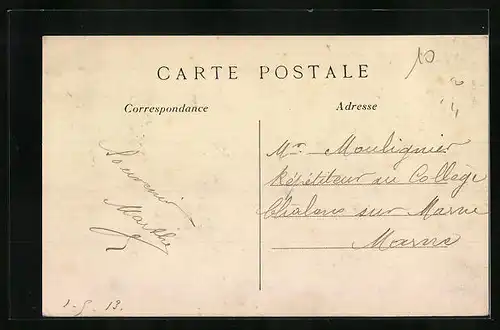 CARTE POSTALE
Correspondance
Adresse
Souvenir
Marthe
Mr Moulignier
Répétiteur au Collège
Chalons sur Marne
Marne
1-5-13.
10